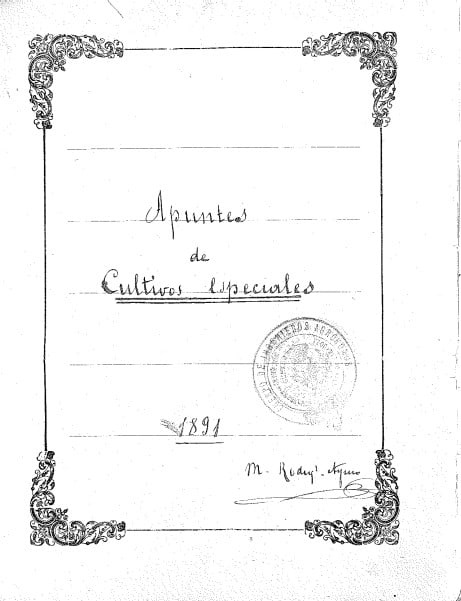 Apuntes
de
Cultivos especiales
CUERPO DE INGENIEROS AGRONOMOS
1891
M. Rodrigz. Ayuso